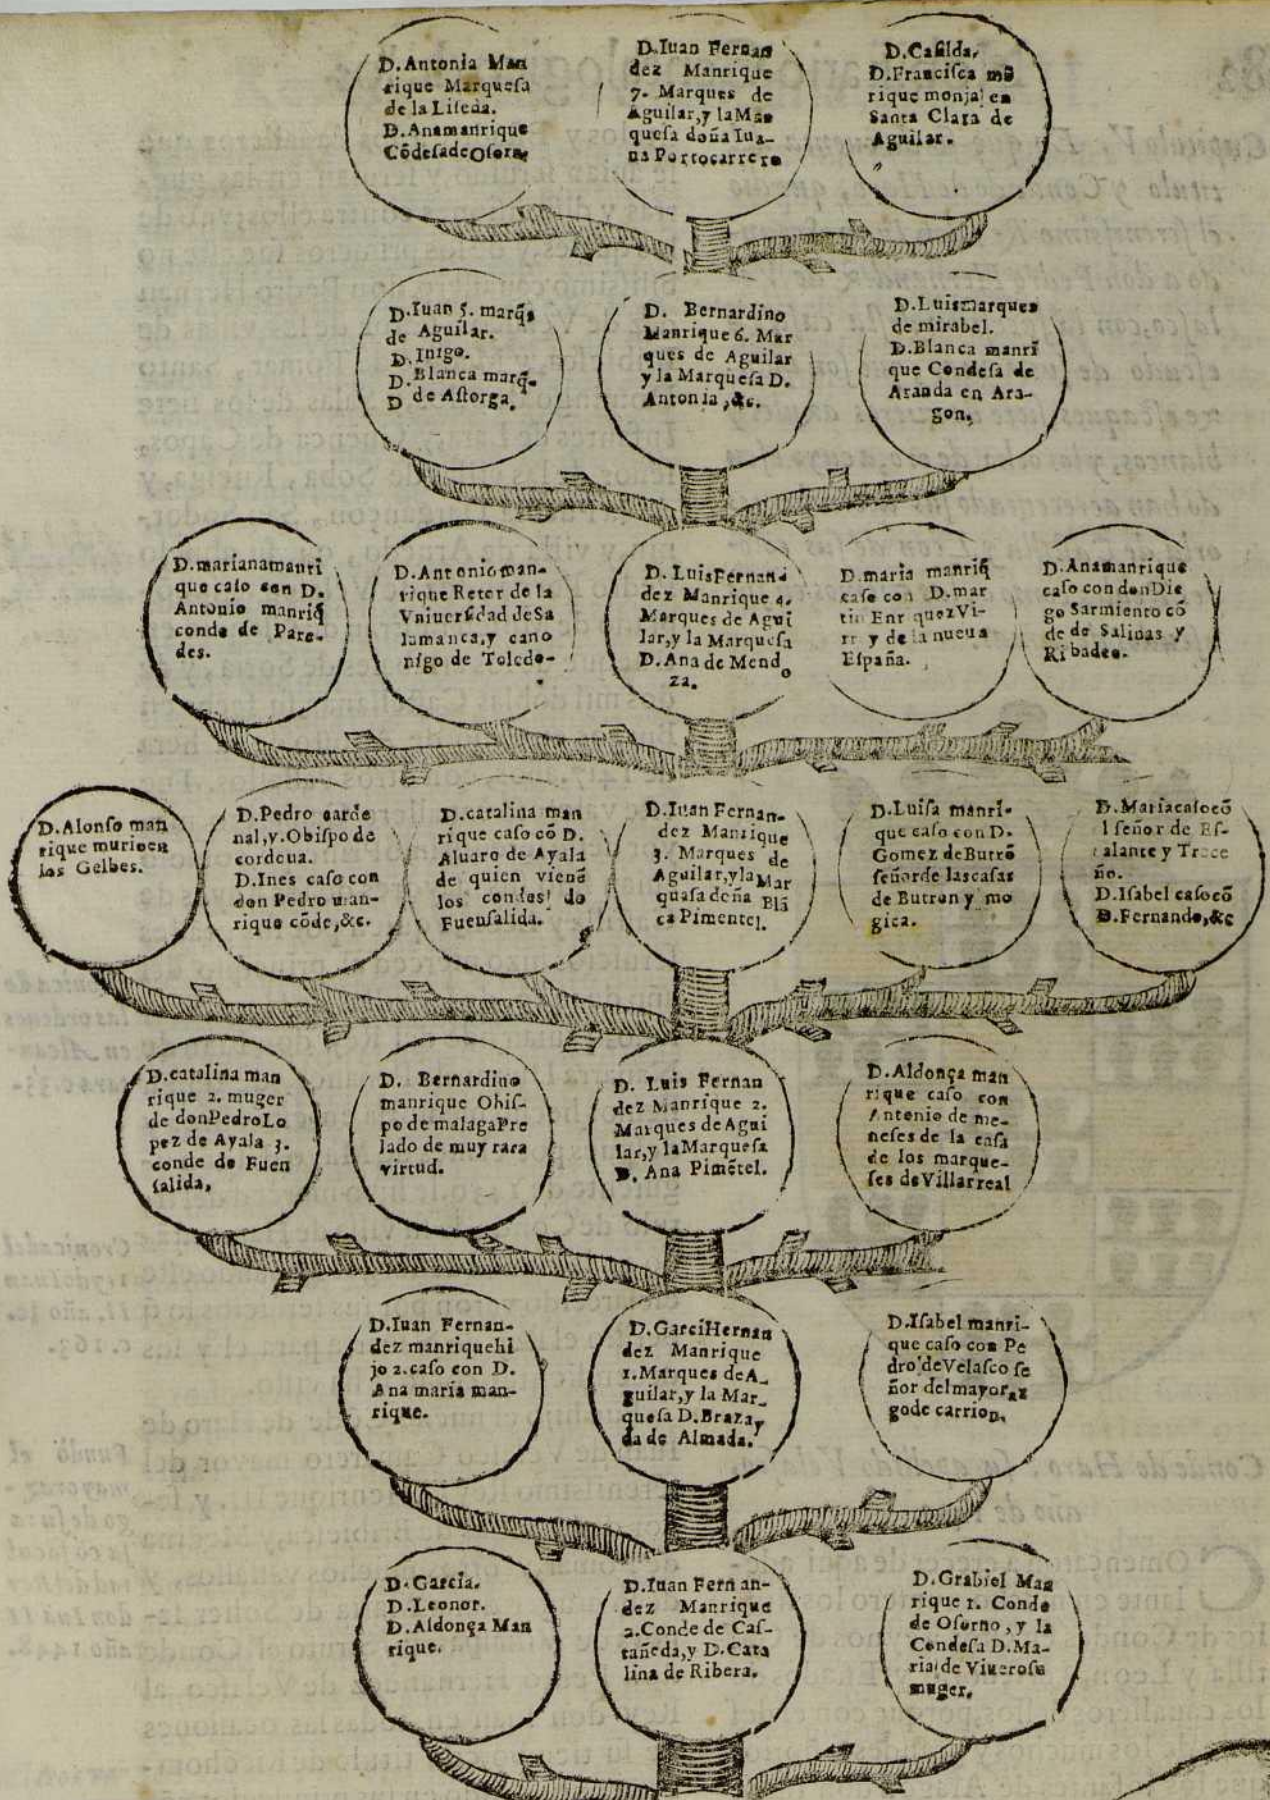 D. Antonia Man
rique Marquesa
de la Liseda.
D. Anamanrique
Cōdesa de Osorn.
D. Iuan Fernan
dez Manrique
7. Marques de
Aguilar, y la Mar
quesa doña Iua-
na Portocarrero
D. Casilda,
D. Francisca mā
rique monja en
Santa Clara de
Aguilar.
D. Iuan 5. marq̄s
de Aguilar.
D. Inigo.
D. Blanca marq̄-
D de Astorga.
D. Bernardino
Manrique 6. Mar
ques de Aguilar
y la Marquesa D.
Antonia, &c.
D. Luis marques
de mirabel.
D. Blanca manri
que Condesa de
Aranda en Ara-
gon,
D. mariana manri
que caso con D.
Antonio manriq̄
conde de Pare-
des.
D. Antonio man-
rique Retor de la
Vniuersidad de Sa
lamanca, y cano
nigo de Toledo-
D. Luis Fernan
dez Manrique 4.
Marques de Agui
lar, y la Marquesa
D. Ana de Mendo
za.
D. maria manriq̄
caso con D. mar
tin Enriquez Vi-
rr y de la nueua
España.
D. Ana manrique
caso con don Die
go Sarmiento cō
de de Salinas y
Ribadeo.
D. Alonso man
rique murio en
los Gelbes.
D. Pedro carde
nal, y Obispo de
cordoua.
D. Ines caso con
don Pedro man-
rique cōde, &c.
D. catalina man
rique caso cō D.
Aluaro de Ayala
de quien vienē
los condes de
Fuensalida.
D. Iuan Fernan-
dez Manrique
3. Marques de
Aguilar, y la Mar
quesa doña Blā
ca Pimentel.
D. Luisa manri-
que caso con D.
Gomez de Butrō
señor de las casas
de Butron y mo
gica.
D. Maria caso cō
l señor de Es-
calante y Trece
ño.
D. Isabel caso cō
D. Fernando, &c
D. catalina man
rique 2. muger
de don Pedro Lo
pez de Ayala 3.
conde de Fuen
salida,
D. Bernardino
manrique Obis-
po de malaga Pre
lado de muy rara
virtud.
D. Luis Fernan
dez Manrique 2.
Marques de Agui
lar, y la Marquesa
D. Ana Pimētel.
D. Aldonça man
rique caso con
Antonio de me-
neses de la casa
de los marque-
ses de Villarreal
D. Iuan Fernan-
dez manrique hi
jo 2. caso con D.
Ana maria man-
rique.
D. Garci Hernan
dez Manrique
1. Marques de A-
guilar, y la Mar-
quesa D. Brazay
da de Almada.
D. Isabel manri-
que caso con Pe
dro de Velasco se
ñor del mayoraz
go de carrion,
D. Garcia.
D. Leonor.
D. Aldonça Man
rique.
D. Iuan Fernan-
dez Manrique
2. Conde de Cas-
tañeda, y D. Cata
lina de Ribera.
D. Grabiel Man
rique 1. Conde
de Osorno, y la
Condesa D. Ma-
ria de Viuero su
muger.